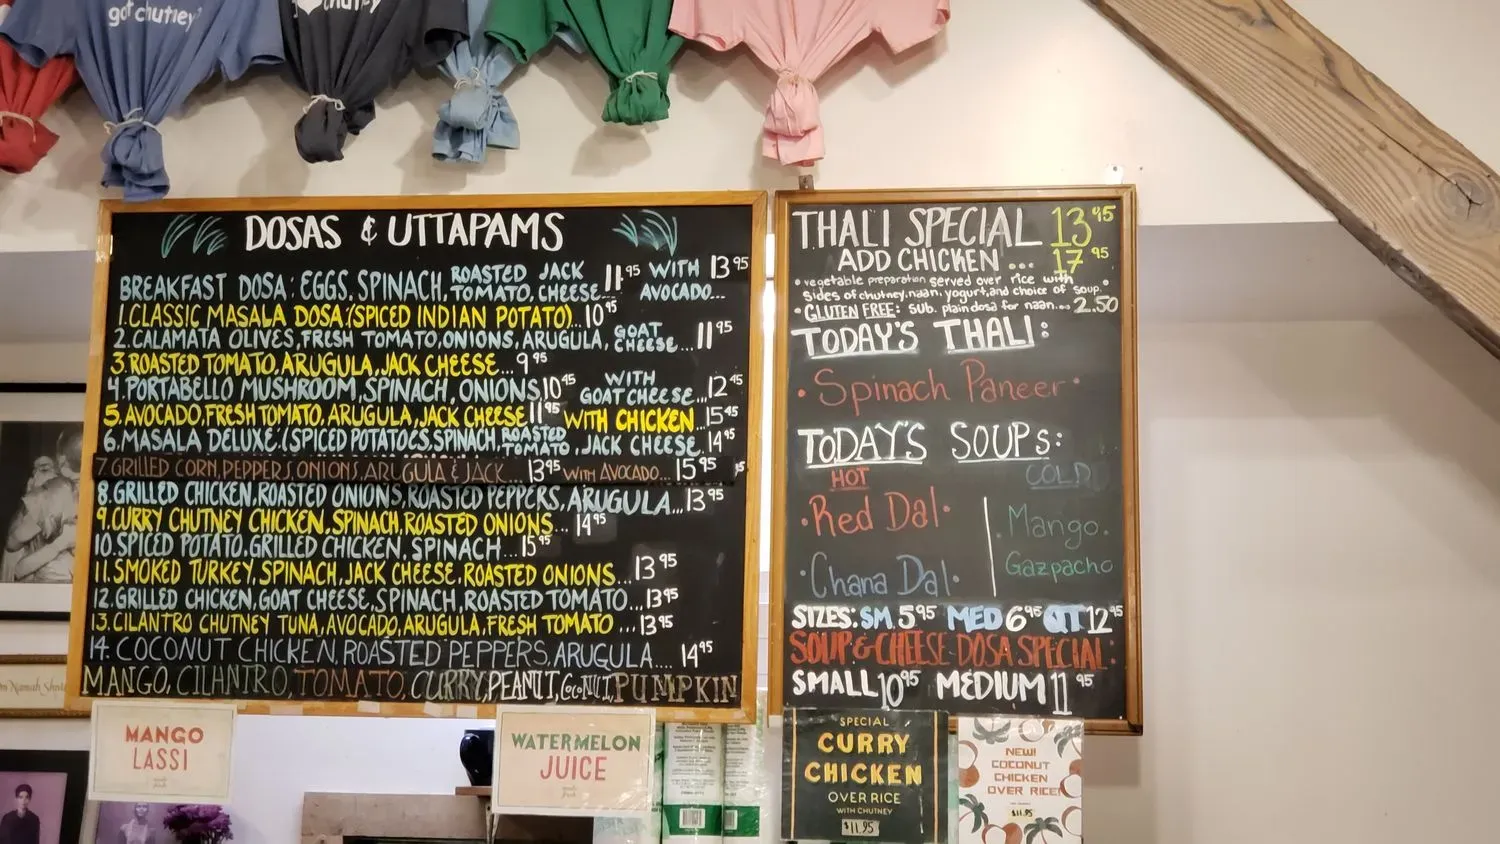 got chutney?
chutney
DOSAS & UTTAPAMS
BREAKFAST DOSA: EGGS, SPINACH, ROASTED TOMATO, JACK CHEESE... 11.95 WITH AVOCADO... 13.95
1. CLASSIC MASALA DOSA (SPICED INDIAN POTATO)... 10.95
2. CALAMATA OLIVES, FRESH TOMATO, ONIONS, ARUGULA, GOAT CHEESE... 11.95
3. ROASTED TOMATO, ARUGULA, JACK CHEESE... 9.95
4. PORTABELLO MUSHROOM, SPINACH, ONIONS 10.45 WITH GOAT CHEESE... 12.45
5. AVOCADO, FRESH TOMATO, ARUGULA, JACK CHEESE 11.95 WITH CHICKEN... 15.45
6. MASALA DELUXE. (SPICED POTATOES, SPINACH, ROASTED TOMATO, JACK CHEESE. 14.95
7. GRILLED CORN, PEPPERS, ONIONS, ARUGULA & JACK... 13.95 WITH AVOCADO... 15.95
8. GRILLED CHICKEN, ROASTED ONIONS, ROASTED PEPPERS, ARUGULA... 13.95
9. CURRY CHUTNEY CHICKEN, SPINACH, ROASTED ONIONS... 14.95
10. SPICED POTATO, GRILLED CHICKEN, SPINACH... 15.95
11. SMOKED TURKEY, SPINACH, JACK CHEESE, ROASTED ONIONS... 13.95
12. GRILLED CHICKEN, GOAT CHEESE, SPINACH, ROASTED TOMATO... 13.95
13. CILANTRO CHUTNEY TUNA, AVOCADO, ARUGULA, FRESH TOMATO ... 13.95
14. COCONUT CHICKEN, ROASTED PEPPERS, ARUGULA.... 14.95
MANGO, CILANTRO, TOMATO, CURRY, PEANUT, COCONUT, PUMPKIN
THALI SPECIAL 13.95
ADD CHICKEN ... 17.95
• vegetable preparation served over rice with
sides of chutney, naan, yogurt, and choice of soup.
• GLUTEN FREE: sub. plain dosa for naan... 2.50
TODAY'S THALI:
• Spinach Paneer •
TODAY'S SOUPS:
HOT
COLD
• Red Dal •
• Mango
Gazpacho
• Chana Dal •
SIZES: SM 5.95 MED 6.95 QT 12.95
SOUP & CHEESE DOSA SPECIAL:
SMALL 10.95 MEDIUM 11.95
MANGO
LASSI
WATERMELON
JUICE
SPECIAL
CURRY
CHICKEN
OVER RICE
WITH CHUTNEY
$11.95
NEW!
COCONUT
CHICKEN
OVER RICE!
$11.95